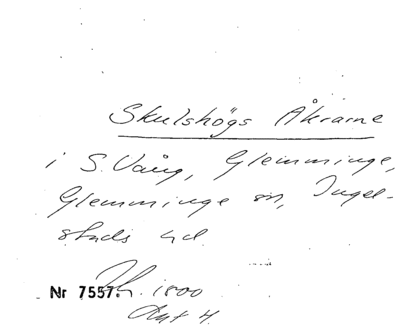 Skulshögs Åkrarne
i S. Vång, Glemminge,
Glemminge sn, Ingel-
stads hd.
Nr 7557. 1800
Akt 4.